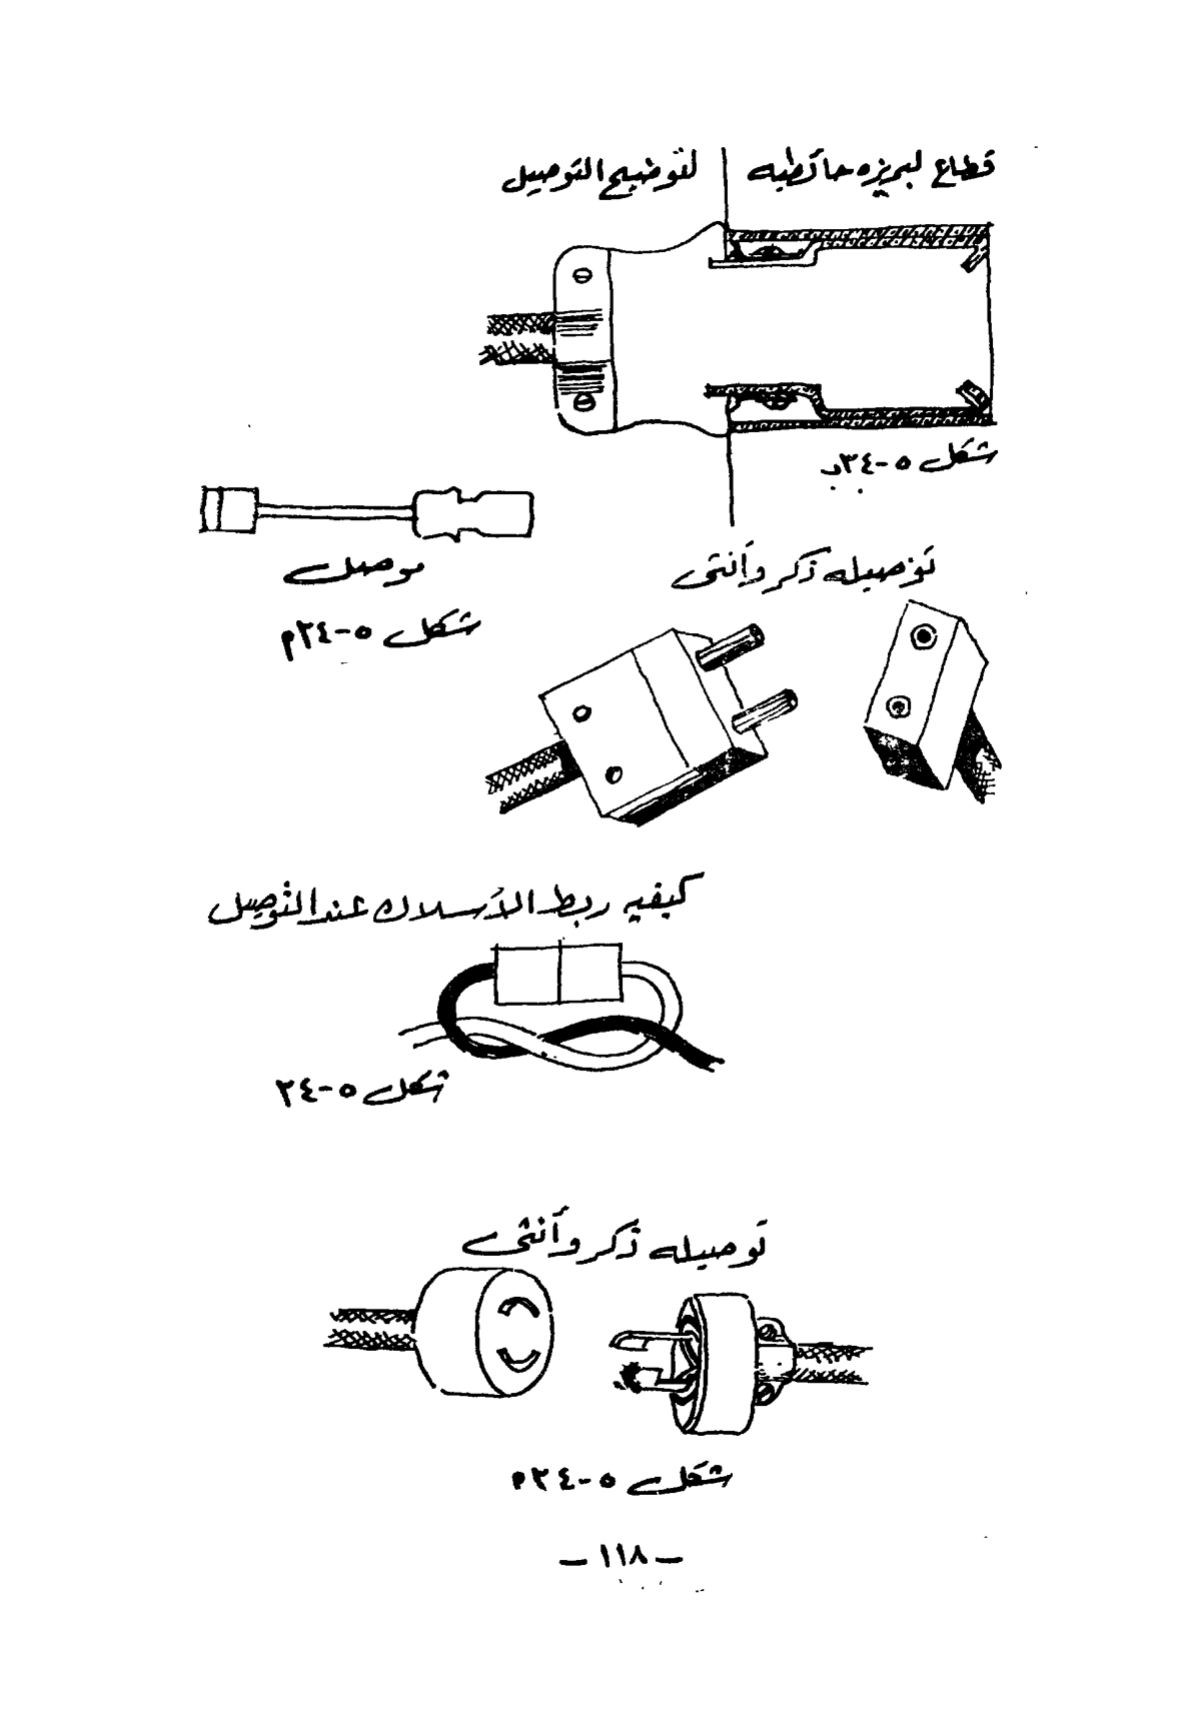 قطاع لبريزه حائطيه لتوضيح التوصيل
شكل ٥-٣٤ب
موصل
شكل ٥-٣٤م
توصيله ذكر وأنثى
كيفيه ربط الأسلاك عند التوصيل
شكل ٥-٣٤
توصيله ذكر وأنثى
شكل ٥-٣٤م
– ١١٨ –